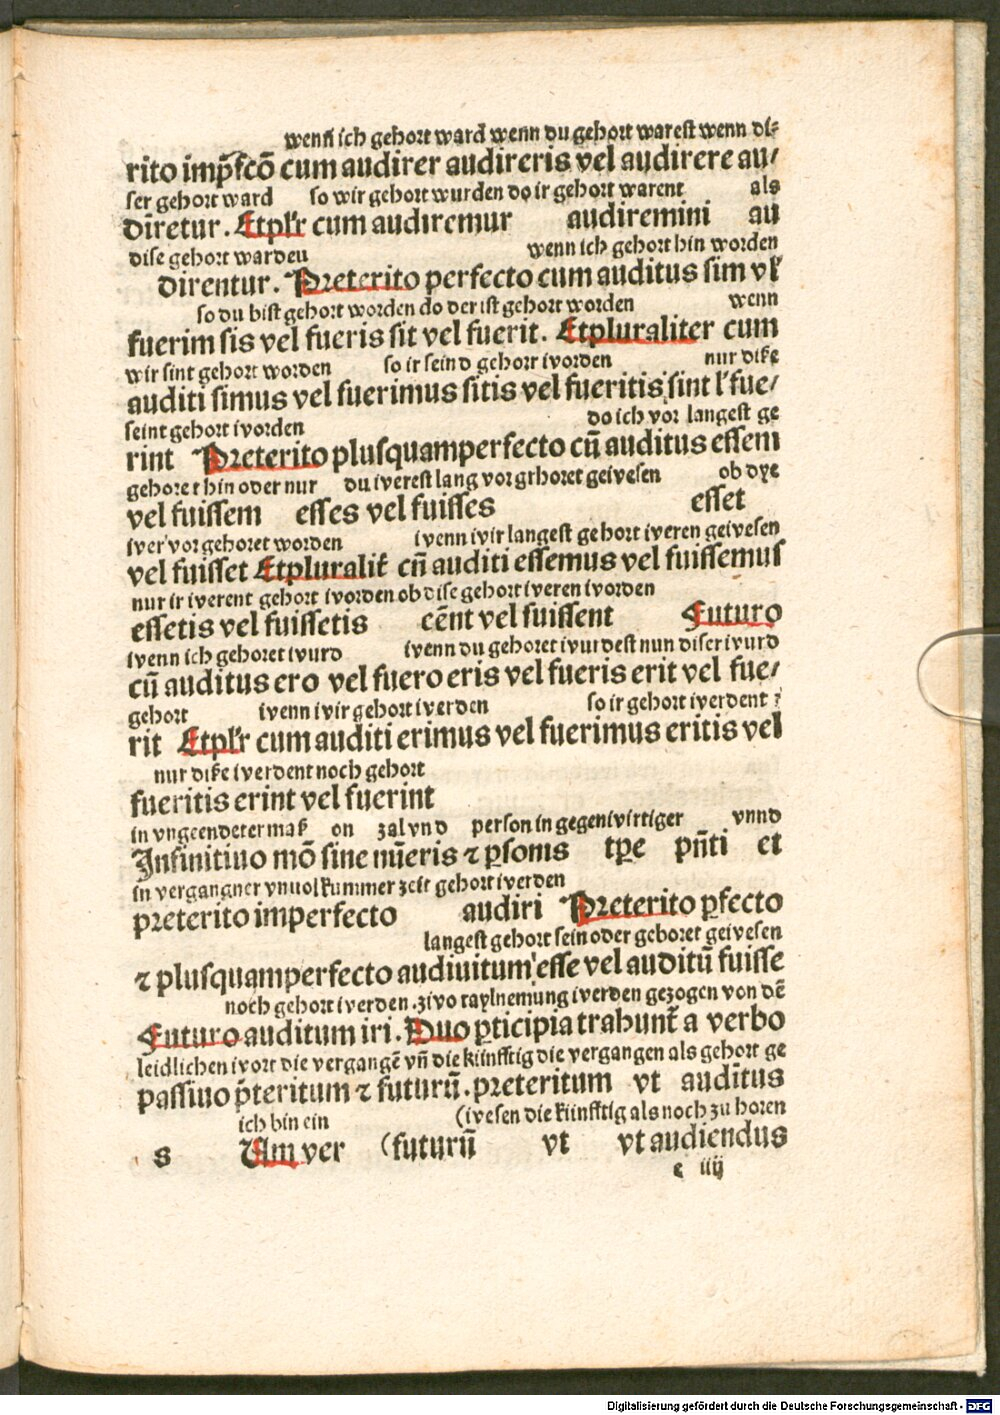 wenn̄ ich gehort ward wenn du gehort warest wenn di⸗
rito imp̄fcō cum audirer audireris vel audirere au/
ser gehort ward so wir gehort wurden do ir gehort warent als
diretur. Etpl'r cum audiremur audiremini au
dise gehort warden wenn ich gehort bin worden
direntur. Preterito perfecto cum auditus sim vl'
so du bist gehort worden do der ist gehort worden wenn
fuerim sis vel fueris sit vel fuerit. Etpluraliter cum
wir sint gehort worden so ir seind gehort worden nur dise
auditi simus vel fuerimus sitis vel fueritis sint l' fue/
seint gehort worden do ich vor langest ge
rint Preterito plusquamperfecto cū auditus essem
gehoret bin oder nur du werest lang vor grhoret gewesen ob dye
vel fuissem esses vel fuisses esset
wer vor gehoret worden wenn wir langest gehort weren gewesen
vel fuisset Etpluralit̄ cū auditi essemus vel fuissemus
nur ir werent gehort worden ob dise gehort weren worden
essetis vel fuissetis cēnt vel fuissent Futuro
wenn ich gehoret wurd wenn du gehoret wurdest nun diser wurd
cū auditus ero vel fuero eris vel fueris erit vel fue/
gehort wenn wir gehort werden so ir gehort werdent
rit Etpl'r cum auditi erimus vel fuerimus eritis vel
nur dise werdent noch gehort
fueritis erint vel fuerint
in vngeendeter maß on zal vnd person in gegenwirtiger vnnd
Infinitiuo mō sine nūeris ⁊ ꝑsonis tꝑe pn̄ti et
in vergangner vnuolkummer zeit gehort werden
preterito imperfecto audiri Preterito ꝑfecto
langest gehort sein oder gehoret gewesen
⁊ plusquamperfecto audiuitum esse vel auditū fuisse
noch gehort werden. zwo taylnemung werden gezogen von dē
Futuro auditum iri. Duo ꝑticipia trahunt̄ a verbo
leidlichen wort die vergangē vn̄ die künfftig die vergangen als gehort ge
passiuo p̄teritum ⁊ futurū. preteritum vt auditus
ich bin ein (wesen die künfftig als noch zu horen
s Um ver (futurū vt vt audiendus
e iiij
Digitalisierung gefördert durch die Deutsche Forschungsgemeinschaft - DFG